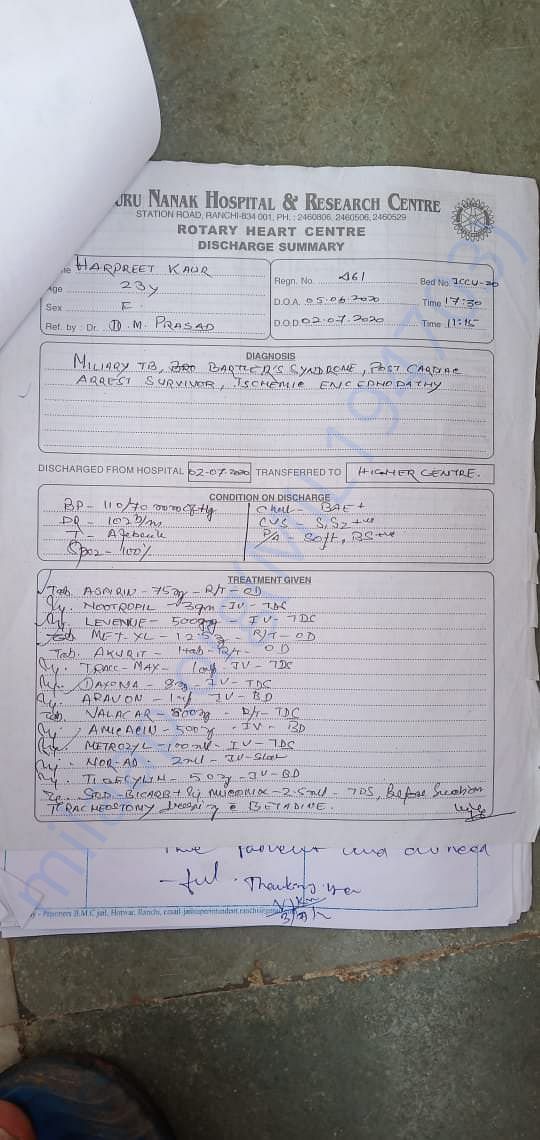 URU NANAK HOSPITAL & RESEARCH CENTRE
STATION ROAD, RANCHI-834 001, PH. : 2460806, 2460506, 2460529
ROTARY HEART CENTRE
DISCHARGE SUMMARY
HARPREET KAUR
Age 23y
Sex F
Ref. by : Dr. D. M. PRASAD
Regn. No. 461 Bed No. ICCU-20
D.O.A. 05.06.2020 Time 17:30
D.O.D 02.07.2020 Time 11:15
DIAGNOSIS
MILIARY TB, BARTTER'S SYNDROME, POST CARDIAC
ARREST SURVIVOR, ISCHEMIC
DISCHARGED FROM HOSPITAL 02-07-2020 TRANSFERRED TO HIGHER CENTRE.
CONDITION ON DISCHARGE
BP - 110/70 mm of Hg
PR - 102 b/m
T - Afebrile
SpO2 - 100%
Chest - BAE+
CVS - S1S2 +ve
P/A Soft, BS+ve
TREATMENT GIVEN
Tab. ASPIRIN - 75mg - R/T - OD
NOOTROPIL - 3gm - IV - TDS
LEVENUE - 500mg IV - TDS
Tab MET-XL - 12.5mg R/T - OD
Tab. AKURIT - R/T - OD
TRAC-MAX - IV - TDS
- IV - TDS
ARAVON - IV - BD
Tab. - R/T - TDS
AMICACIN - 500mg - IV - BD
METROZYL - 100ml - IV - TDS
NOR-AD - 2ml - IV - Slow
- 50mg - IV - BD
SOD. BICARB + - 2.5ml - TDS, Before Suction
TRACHEOSTOMY dressing BETADINE.
The and
- ful. Thanking you
Ranchi
milaap.org